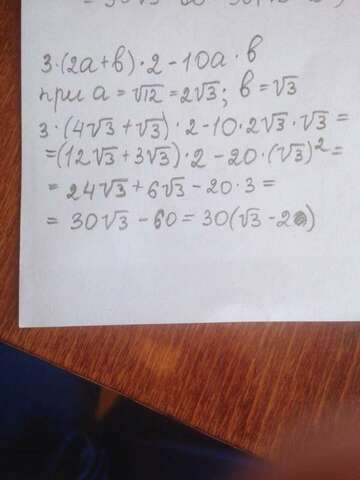 3·(2a+b)·2-10a·b
при a=√12=2√3; b=√3
3·(4√3+√3)·2-10·2√3·√3=
=(12√3+3√3)·2-20·(√3)²=
=24√3+6√3-20·3=
=30√3-60=30(√3-2)